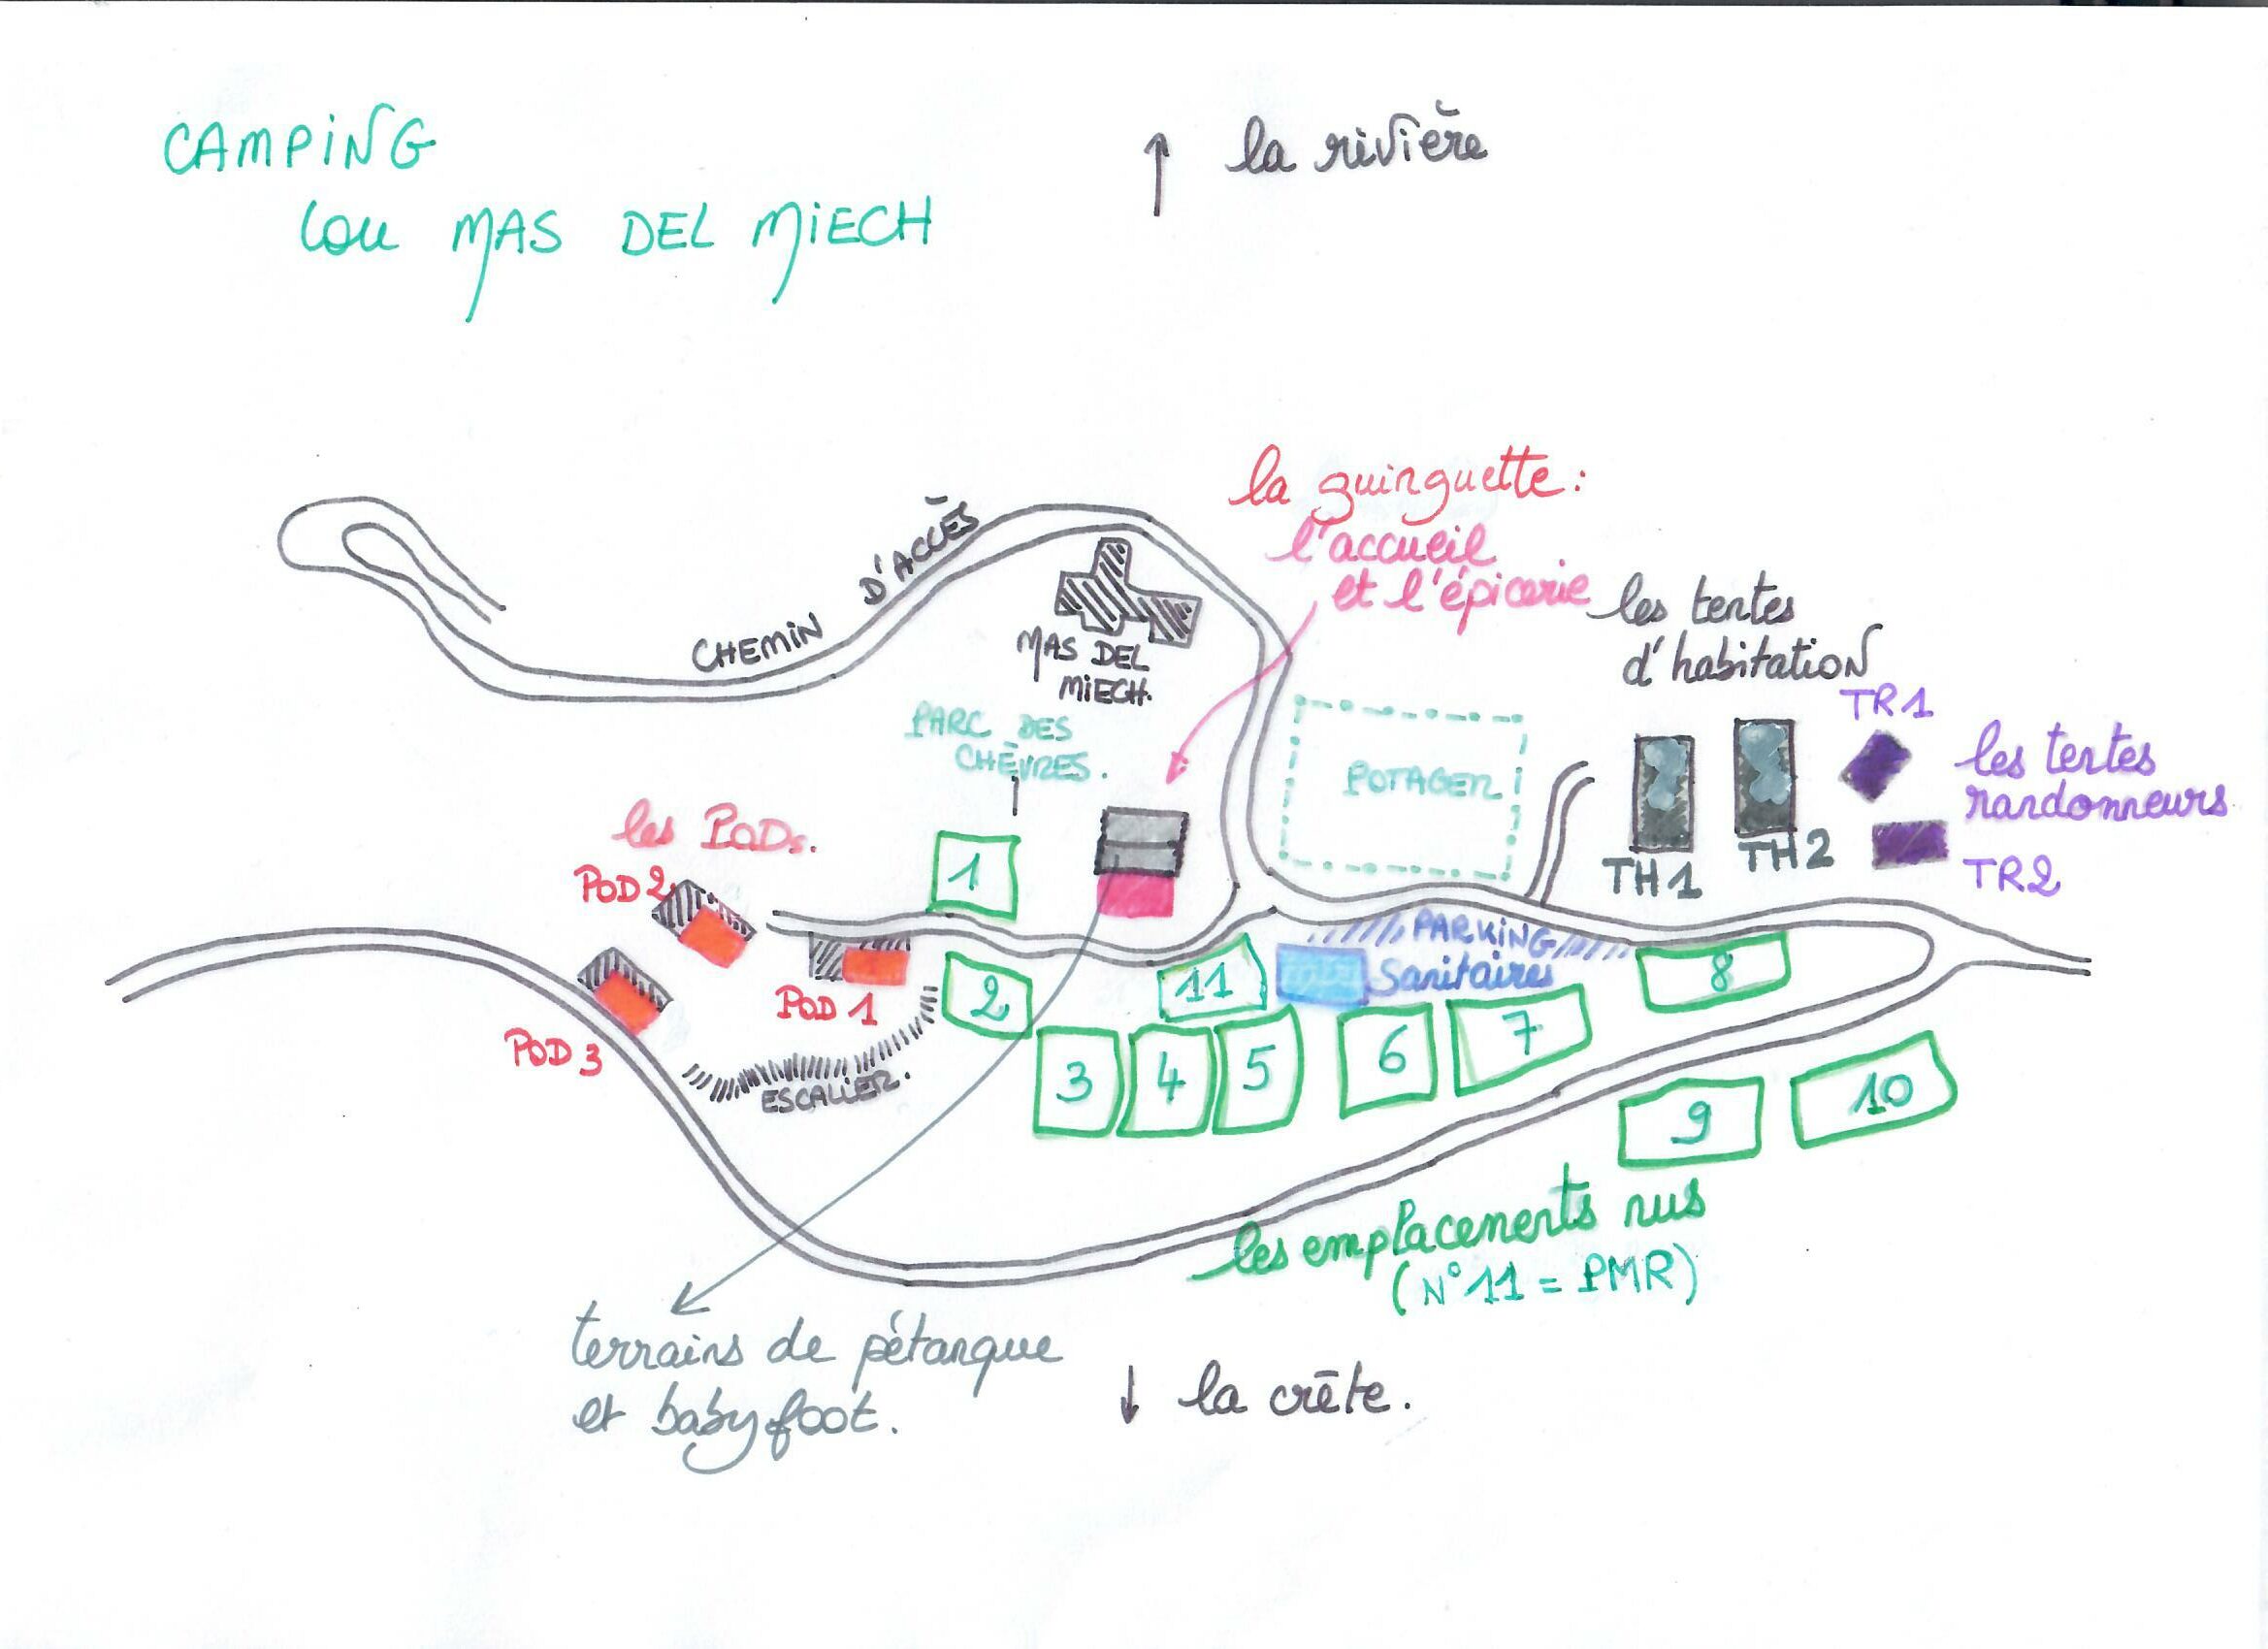 CAMPING
lou MAS DEL MIECH
↑ la rivière
la guinguette:
l'accueil
et l'épicerie
CHEMIN D'ACCÈS
MAS DEL
MIECH.
les tentes
d'habitation
TR1
les tentes
randonneurs
TR2
TH1
TH2
POTAGER
PARC DES
CHÈVRES.
les PODs.
POD 2
POD 1
POD 3
1
2
11
PARKING
Sanitaires
8
3
4
5
6
7
9
10
ESCALIER.
les emplacements nus
(N°11 = PMR)
terrains de pétanque
et babyfoot.
↓ la crête.